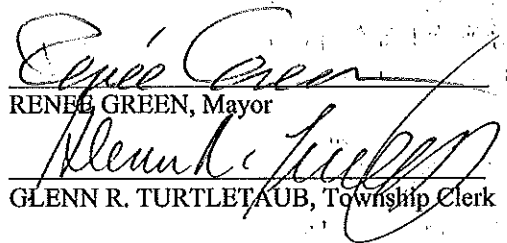 Renée Green
RENEE GREEN, Mayor
Glenn R. Turtletaub
GLENN R. TURTLETAUB, Township Clerk